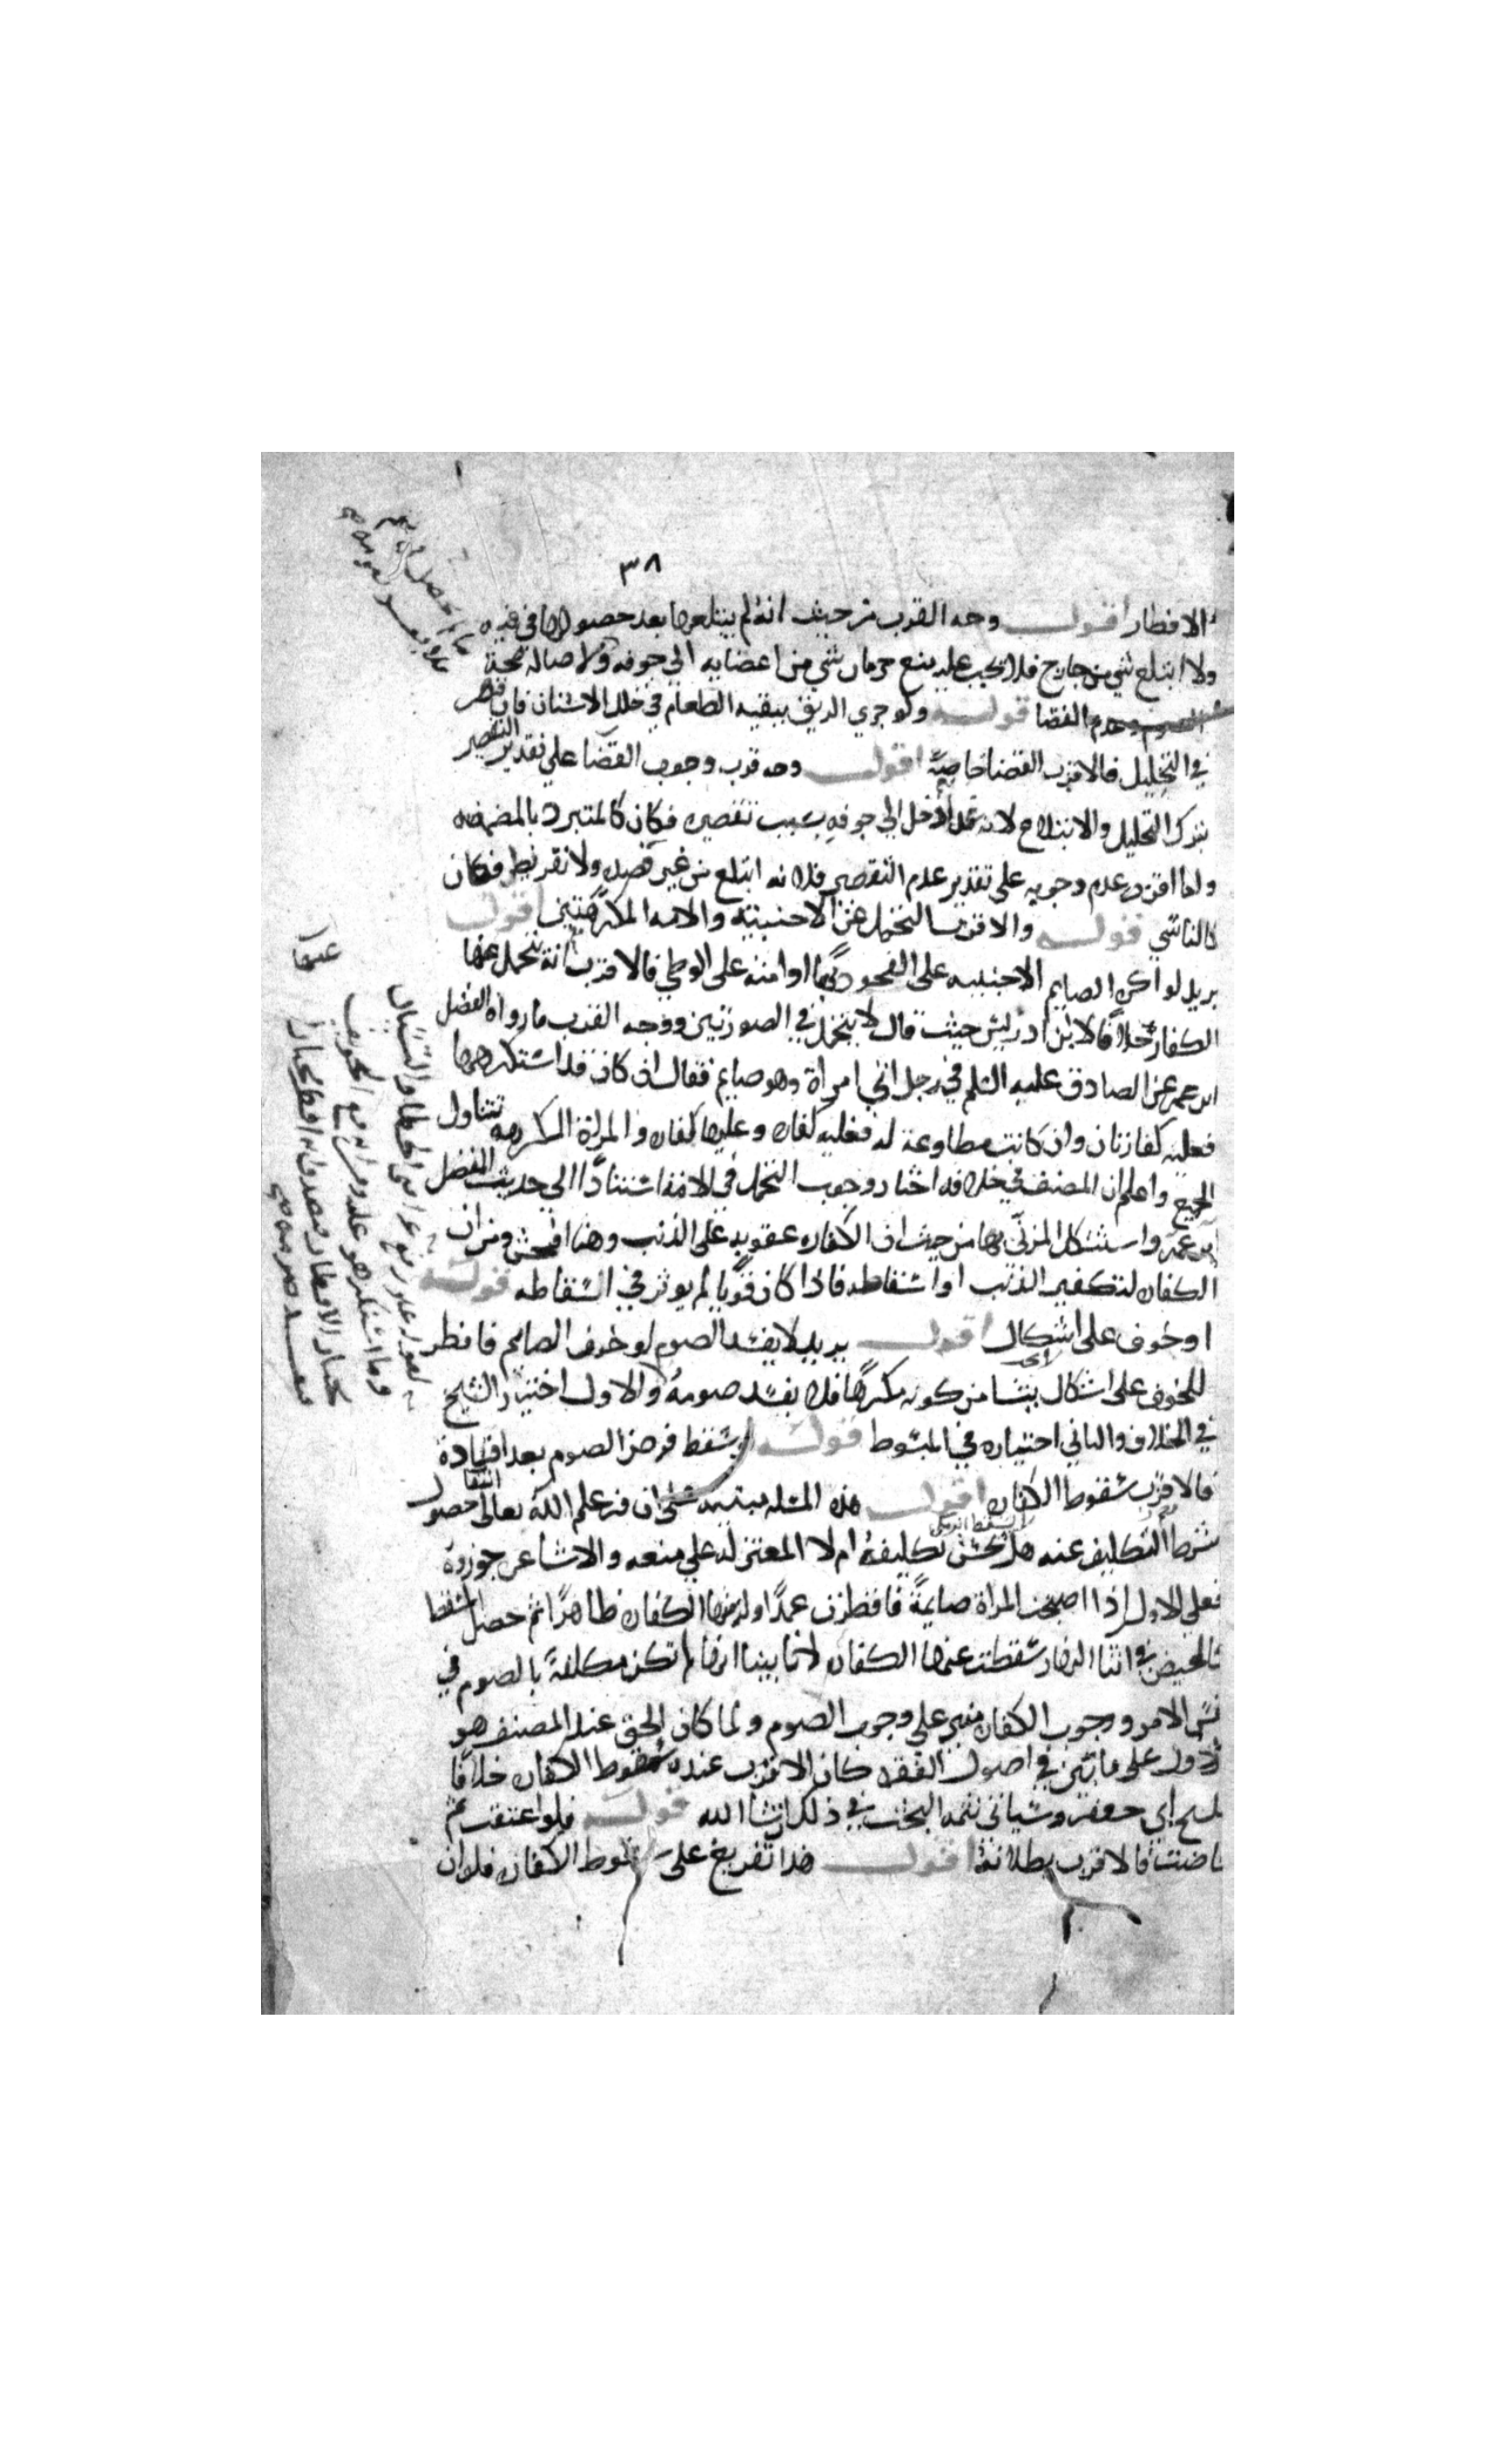 ٣٨
الافطار اقول وجه القرب من حيث انه لم يبتلعها بعد حصولها في فيه
ولا ابتلع شي من خارج فلا يجب عليه منع جريان شي من اعضايه الى جوفه ولاصالة صحة
الصوم وعدم القضا قوله ولو جري الريق ببقية الطعام في خلل الاسنان فان قصر
في التخليل فالاقرب القضا خاصة اقول وجه قرب وجوب القضا على تقدير التقصير
بترك التخليل والابتلاع لانه دخل الى جوفه بسبب تقصيره فكان كالمتبرد بالمضمضه
واما اقرب عدم وجوبه على تقدير عدم التقصير فلانه ابتلع من غير قصد ولا تفريط فكان
كالناسي قوله والاقرب التحمل عن الاجنبية والامه المكرهتين اقول
يريد لو اكره الصايم الاجنبيه على الفجور بها او امته على الوطي فالاقرب انه يتحمل عنها
الكفاره خلافا لابن ادريس حيث قال لا يتحمل في الصورتين ووجه القرب ما رواه المفضل
ابن عمر عن الصادق عليه السلم في رجل اتي امراة وهو صايم فقال ان كان قد استكرهها
فعليه كفارتان وان كانت مطاوعة له فعليه كفاره وعليها كفاره والمراة المكرهه تتناول
الجميع واعلم ان المصنف في خلافه اختار وجوب التحمل في الامة استنادا الي حديث المفضل
بن عمر واستشكل المزني بها من حيث ان الكفاره عقوبه على الذنب وهنا افحش ومن ان
الكفاره لتكفير الذنب او اسقاطه فاذا كان قويا لم يوثر في اسقاطه قوله
او خوف على اشكال اقول يريد لا يفسد الصوم لو خوف الصايم فافطر
للخوف على اشكال ينشا من كونه مكرها فلا يفسد صومه والاول اختيار الشيخ
في الخلاف والثاني اختياره في المبسوط قوله لو سقط فرض الصوم بعد افساده
فالاقرب سقوط الكفاره اقول هذه المسئله مبنيه على ان من علم الله تعالى حصول انتفا
شرط التكليف عنه هل يحسن تكليفه ام لا المعتزله على منعه والاشاعره جوزوه
فعلى الاول اذا اصبحت المراة صايمة فافطرت عمدا ولزمها الكفاره ظاهرا ثم حصل المسقط
كالحيض في اثنا النهار سقطت عنها الكفاره لانا بينا انها لم تكن مكلفة بالصوم في
نفس الامر ووجوب الكفاره مبني على وجوب الصوم ولما كان الحق عند المصنف هو
الاول على ما بين في اصول الفقه كان الاقرب عنده سقوط الكفاره خلافا
للشيخ ابي جعفر وسياتي تتمة البحث في ذلك ان شا الله قوله فلو اعتقت ثم
حاضت فالاقرب بطلانه اقول هذا تفريع على سقوط الكفاره فلو ان